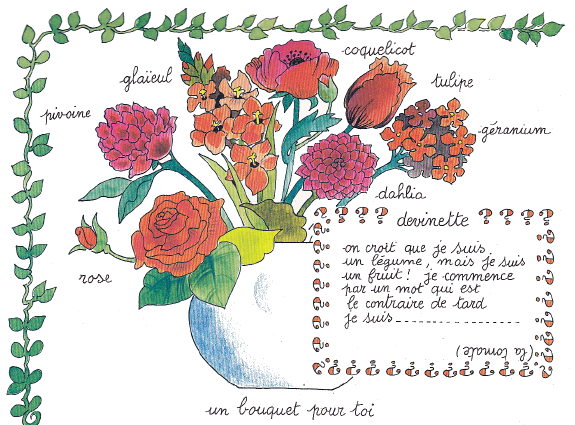 coquelicot
glaïeul
tulipe
pivoine
géranium
dahlia
rose
? ? ? ? devinette ? ? ? ?
on croit que je suis
un légume, mais je suis
un fruit! je commence
par un mot qui est
le contraire de tard
je suis
(la tomate)
un bouquet pour toi